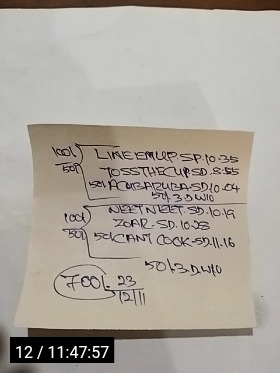 100/ LINEEMUP.SD.10.35
50/ TOSSTHECUP.SD.8.55
50/ ACABAZUBA.SD.10.04
50/.3.D.W10
100/ NEETNEET.SD.10.19
50/ ZOAR.SD.10.28
50/ CANT COCK.SD.11.16
50/.3.D.W10
700/. 23
12/11
12 / 11:47:57